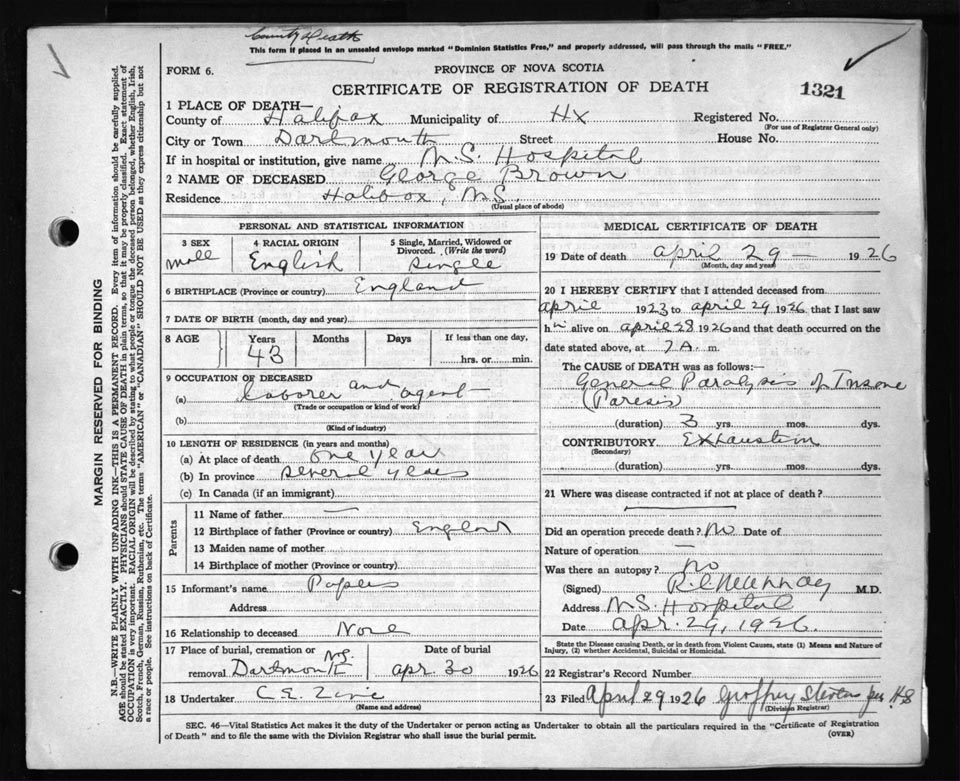 County Death
This form if placed in an unsealed envelope marked "Dominion Statistics Free," and properly addressed, will pass through the mails "FREE."
FORM 6.
PROVINCE OF NOVA SCOTIA
CERTIFICATE OF REGISTRATION OF DEATH
1321
1 PLACE OF DEATH—
County of Halifax Municipality of Hx Registered No.
(For use of Registrar General only)
City or Town Dartmouth Street House No.
If in hospital or institution, give name N.S. Hospital
2 NAME OF DECEASED George Brown
Residence Halifax, N.S.
(Usual place of abode)
PERSONAL AND STATISTICAL INFORMATION
3 SEX 4 RACIAL ORIGIN 5 Single, Married, Widowed or Divorced. (Write the word)
male English single
6 BIRTHPLACE (Province or country) England
7 DATE OF BIRTH (month, day and year)
8 AGE Years Months Days If less than one day,
43 hrs. or min.
9 OCCUPATION OF DECEASED
(a) laborer and agent
(Trade or occupation or kind of work)
(b)
(Kind of industry)
10 LENGTH OF RESIDENCE (in years and months)
(a) At place of death one year
(b) In province several years
(c) In Canada (if an immigrant)
Parents
11 Name of father —
12 Birthplace of father (Province or country) England
13 Maiden name of mother
14 Birthplace of mother (Province or country)
15 Informant's name Papers
Address
16 Relationship to deceased None
17 Place of burial, cremation or removal Dartmouth N.S. Date of burial apr. 30 1926
18 Undertaker C.E.
(Name and address)
MEDICAL CERTIFICATE OF DEATH
19 Date of death april 29 — 1926
(Month, day and year)
20 I HEREBY CERTIFY that I attended deceased from
april 1923 to april 29 1926 that I last saw
him alive on april 28 1926 and that death occurred on the
date stated above, at 7 A. m.
The CAUSE of DEATH was as follows:—
General Paralysis of Insane
(Paresis)
(duration) 3 yrs. mos. dys.
CONTRIBUTORY Exhaustion
(Secondary)
(duration) yrs. mos. dys.
21 Where was disease contracted if not at place of death?
Did an operation precede death? No Date of
Nature of operation —
Was there an autopsy? no
(Signed) M.D.
Address N.S. Hospital
Date Apr. 29, 1926.
State the Disease causing Death, or in Death from Violent Causes, state (1) Means and Nature of
Injury, (2) whether Accidental, Suicidal or Homicidal.
22 Registrar's Record Number
23 Filed April 29 1926 Geoffrey Stevens
(Division Registrar)
SEC. 46—Vital Statistics Act makes it the duty of the Undertaker or person acting as Undertaker to obtain all the particulars required in the "Certificate of Registration
of Death" and to file the same with the Division Registrar who shall issue the burial permit. (OVER)
MARGIN RESERVED FOR BINDING
N.B.—WRITE PLAINLY WITH UNFADING INK—THIS IS A PERMANENT RECORD. Every item of information should be carefully supplied.
AGE should be stated EXACTLY. PHYSICIANS should STATE CAUSE OF DEATH in plain terms, so that it may be properly classified. Exact statement of
OCCUPATION is very important. RACIAL ORIGIN will be described by stating to what people or tongue the deceased person belonged, whether English, Irish,
Scotch, French, German, Russian, Ruthenian, etc. The terms "AMERICAN" or "CANADIAN" SHOULD NOT BE USED as they express citizenship but not
a race or people. See instructions on back of Certificate.